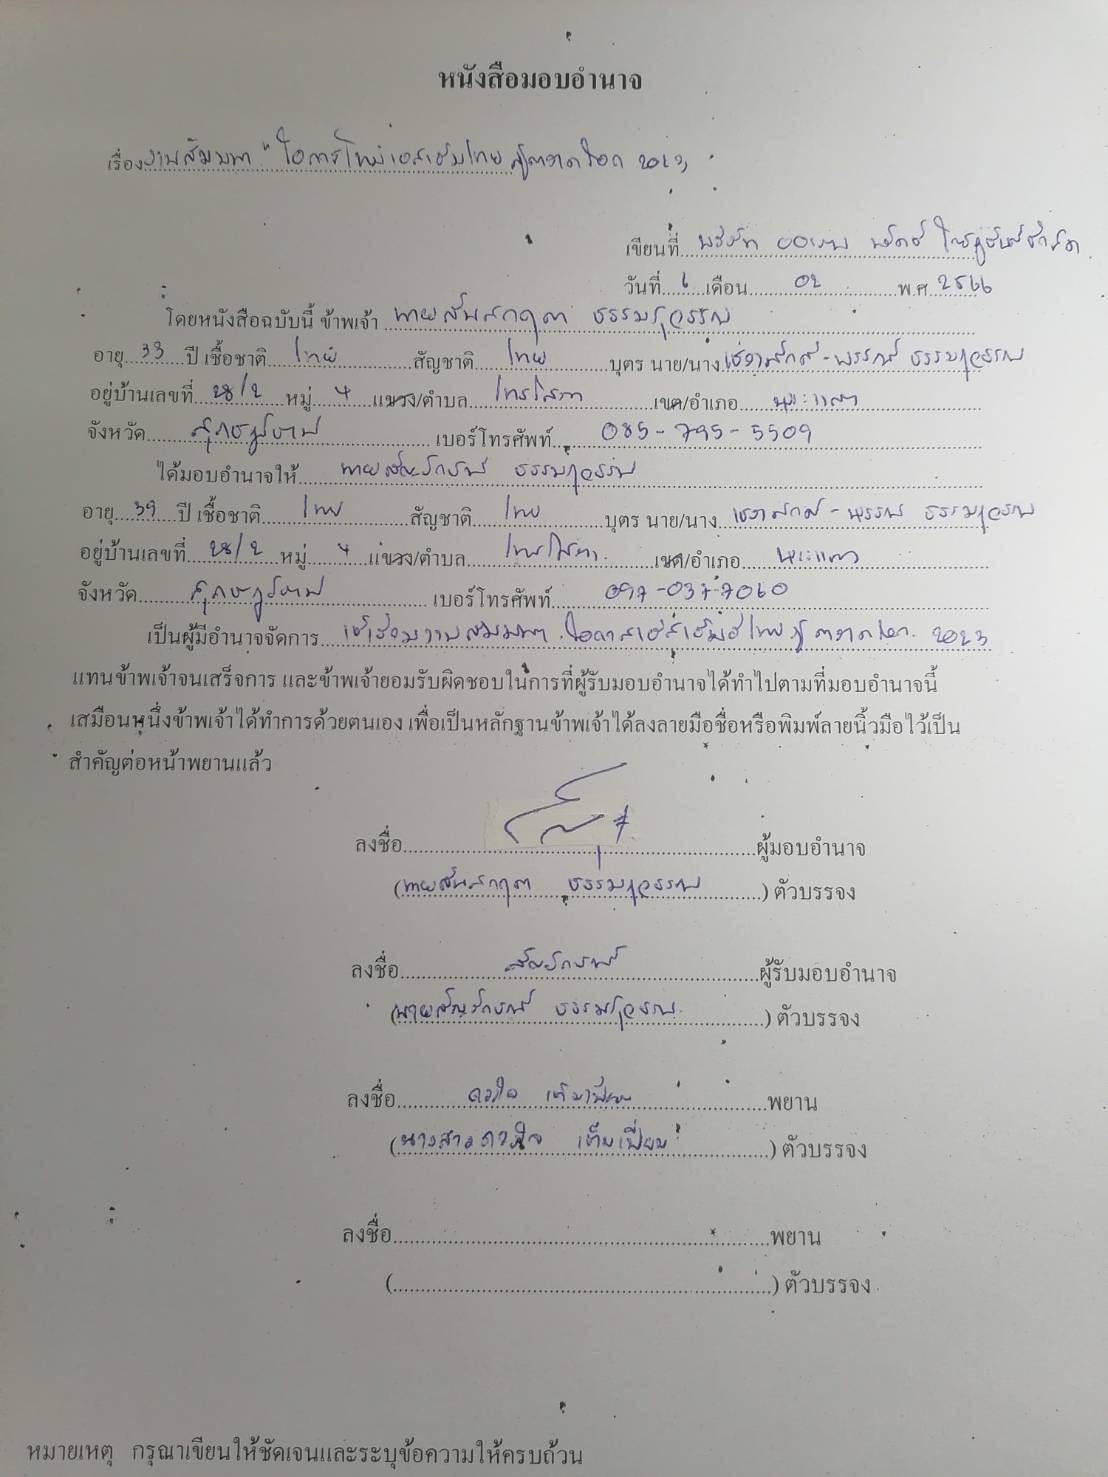 หนังสือมอบอำนาจ
เรื่อง งานสัมมนา " โอกาสใหม่เอสเอ็มไทย สู่ตลาดโลก 2023
เขียนที่ บริษัท จำกัด
วันที่ 6 เดือน 02 พ.ศ. 2566
โดยหนังสือฉบับนี้ ข้าพเจ้า นายสันสกฤตา ธรรมสุวรรณ
อายุ 33 ปี เชื้อชาติ ไทย สัญชาติ ไทย บุตร นาย/นาง ธรรมสุวรรณ
อยู่บ้านเลขที่ 28/2 หมู่ 4 แขวง/ตำบล ไทรโสภา เขต/อำเภอ พระแสง
จังหวัด สุราษฎร์ธานี เบอร์โทรศัพท์ 085-795-5509
ได้มอบอำนาจให้ ธรรมสุวรรณ
อายุ 39 ปี เชื้อชาติ ไทย สัญชาติ ไทย บุตร นาย/นาง ธรรมสุวรรณ
อยู่บ้านเลขที่ 28/2 หมู่ 4 แขวง/ตำบล ไทรโสภา เขต/อำเภอ พระแสง
จังหวัด สุราษฎร์ธานี เบอร์โทรศัพท์ 097-037-7060
เป็นผู้มีอำนาจจัดการ เข้าร่วมงานสัมมนา สู่ตลาดโลก 2023
แทนข้าพเจ้าจนเสร็จการ และข้าพเจ้ายอมรับผิดชอบในการที่ผู้รับมอบอำนาจได้ทำไปตามที่มอบอำนาจนี้
เสมือนหนึ่งข้าพเจ้าได้ทำการด้วยตนเอง เพื่อเป็นหลักฐานข้าพเจ้าได้ลงลายมือชื่อหรือพิมพ์ลายนิ้วมือไว้เป็น
สำคัญต่อหน้าพยานแล้ว
ลงชื่อ ผู้มอบอำนาจ
(นายสันสกฤตา ธรรมสุวรรณ) ตัวบรรจง
ลงชื่อ ผู้รับมอบอำนาจ
( ธรรมสุวรรณ) ตัวบรรจง
ลงชื่อ ดวงใจ เต็มเปี่ยม พยาน
(นางสาวดวงใจ เต็มเปี่ยม) ตัวบรรจง
ลงชื่อ พยาน
( ) ตัวบรรจง
หมายเหตุ กรุณาเขียนให้ชัดเจนและระบุข้อความให้ครบถ้วน